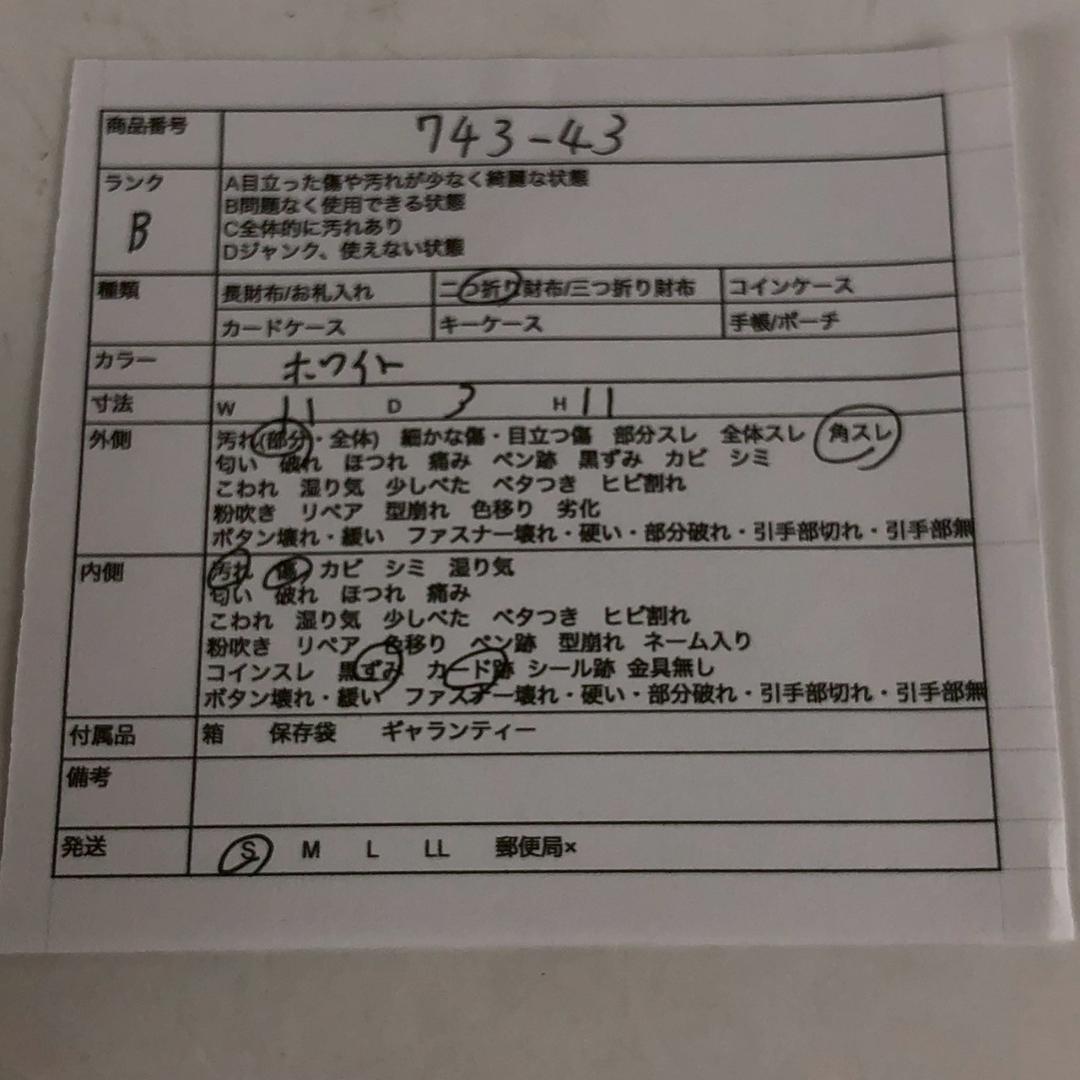 商品番号 743-43
ランク A目立った傷や汚れが少なく綺麗な状態
B問題なく使用できる状態
B C全体的に汚れあり
Dジャンク、使えない状態
種類 長財布/お札入れ 二つ折り財布/三つ折り財布 コインケース
カードケース キーケース 手帳/ポーチ
カラー ホワイト
寸法 W 11 D 3 H 11
外側 汚れ(部分・全体) 細かな傷・目立つ傷 部分スレ 全体スレ 角スレ
匂い 破れ ほつれ 痛み ペン跡 黒ずみ カビ シミ
こわれ 湿り気 少しべた ベタつき ヒビ割れ
粉吹き リペア 型崩れ 色移り 劣化
ボタン壊れ・緩い ファスナー壊れ・硬い・部分破れ・引手部切れ・引手部無
内側 汚れ 傷 カビ シミ 湿り気
匂い 破れ ほつれ 痛み
こわれ 湿り気 少しべた ベタつき ヒビ割れ
粉吹き リペア 色移り ペン跡 型崩れ ネーム入り
コインスレ 黒ずみ カード跡 シール跡 金具無し
ボタン壊れ・緩い ファスナー壊れ・硬い・部分破れ・引手部切れ・引手部無
付属品 箱 保存袋 ギャランティー
備考
発送 S M L LL 郵便局×